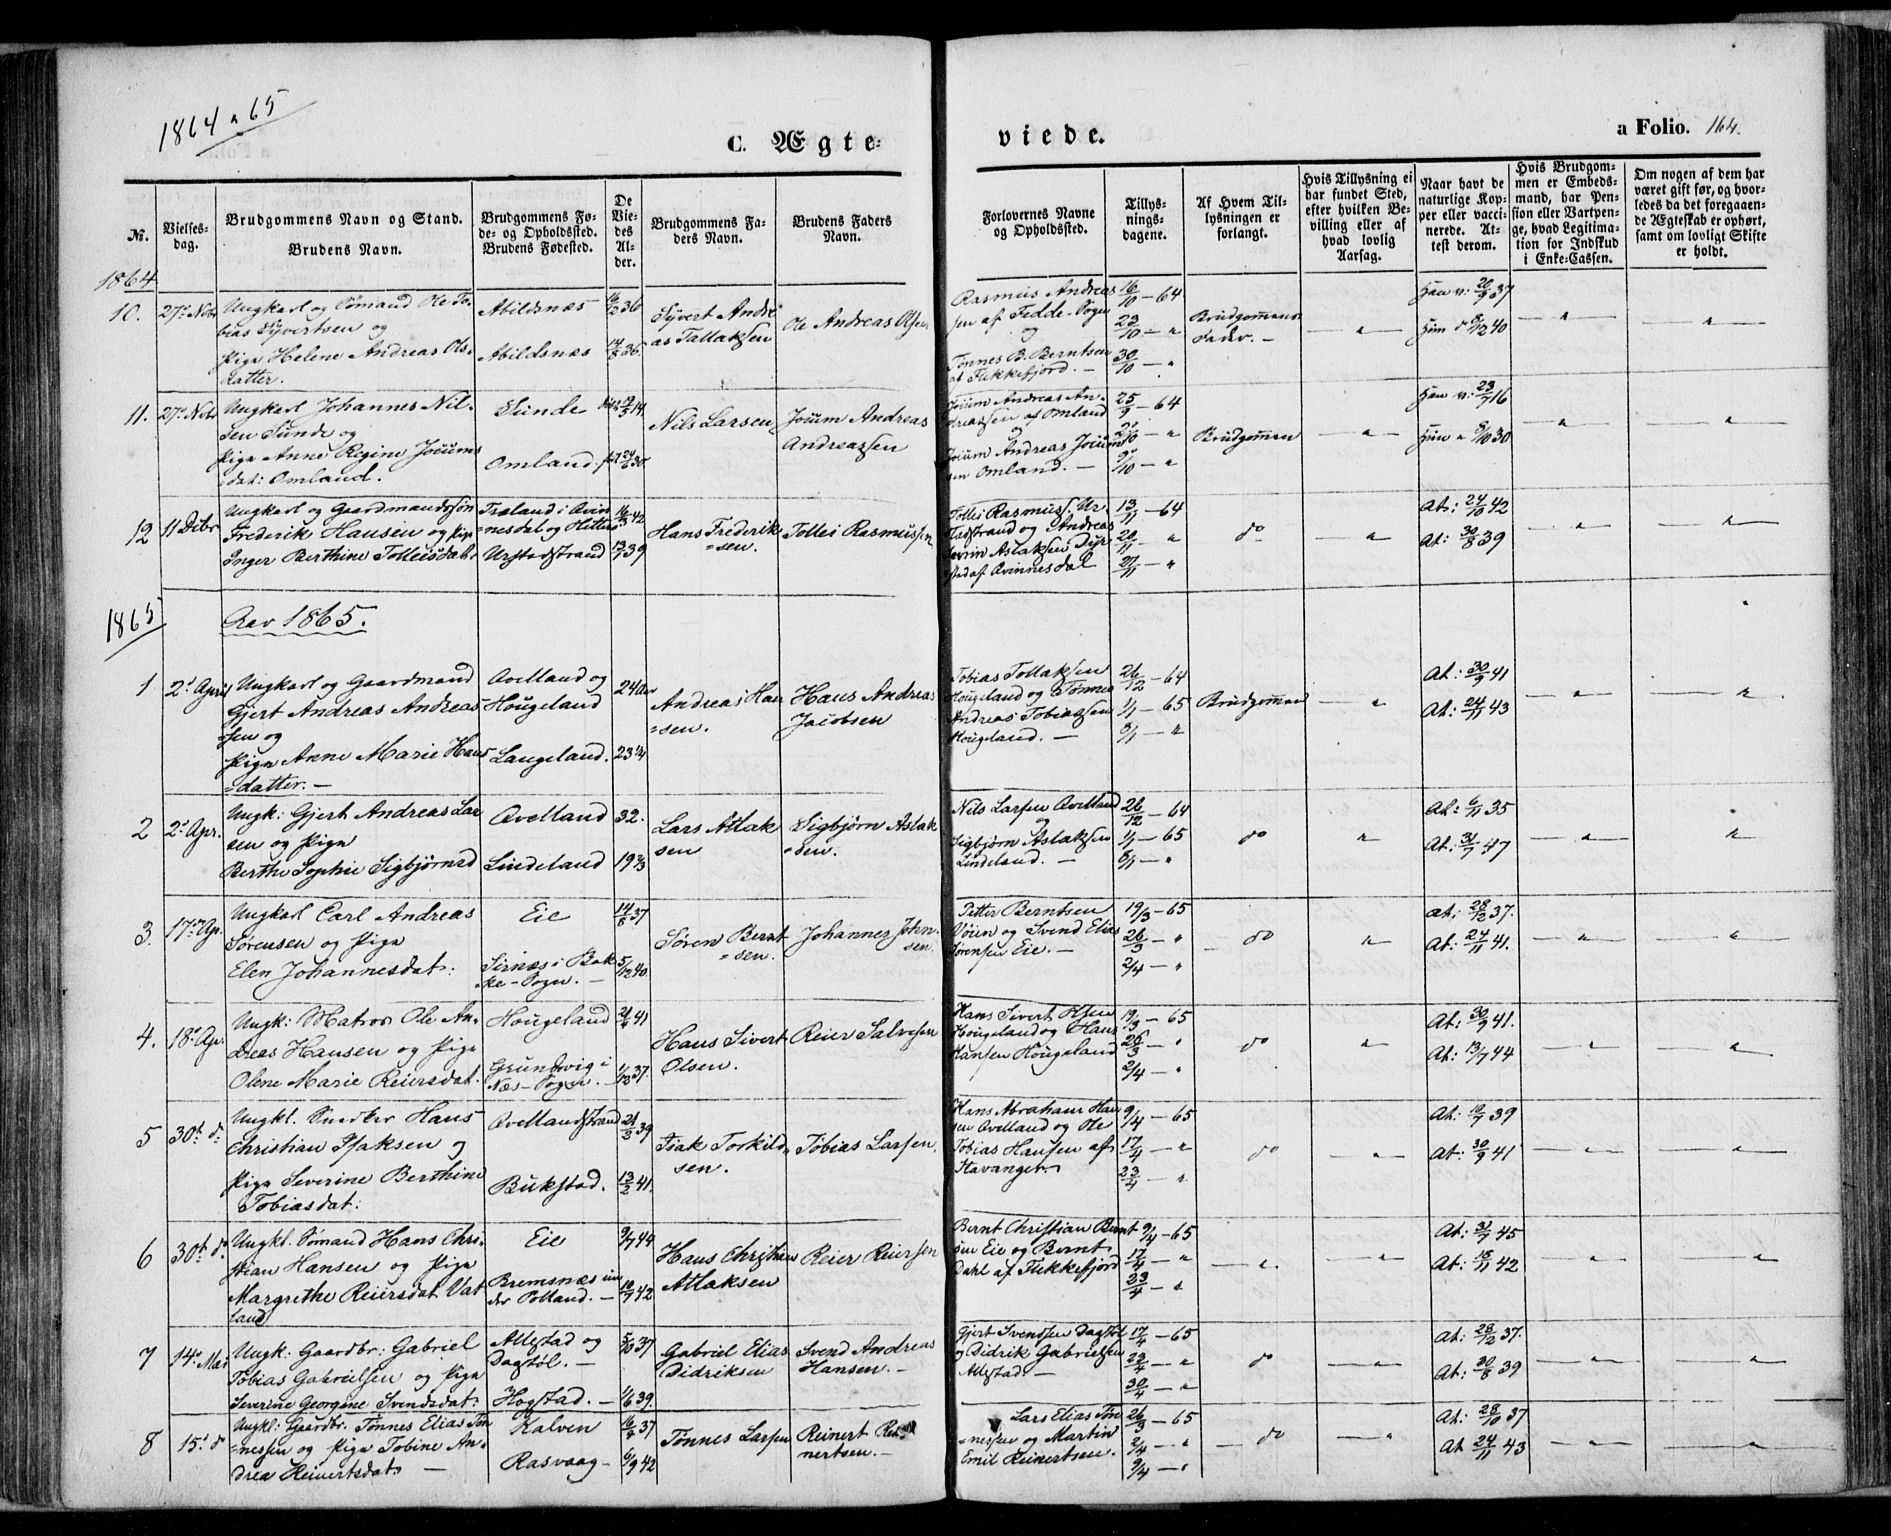 1864 & 65
C. Ægte-
viede.
a Folio. 164.
No.
Vielses-
dag.
Brudgommens Navn og Stand.
Brudens Navn.
Brudgommens Fø-
de- og Opholdssted.
Brudens Fødested.
De
Vie-
des
Al-
der.
Brudgommens Fa-
ders Navn.
Brudens Faders
Navn.
Forlovernes Navne
og Opholdssted.
Tillys-
nings-
dagene.
Af Hvem Til-
lysningen er
forlangt.
Hvis Tillysning ei
har fundet Sted,
efter hvilken Be-
villing eller af
hvad lovlig
Aarsag.
Naar havt de
naturlige Kop-
per eller vacci-
nerede. At-
test derom.
Hvis Brudgom-
men er Embeds-
mand, har Pen-
sion eller Vartpen-
ge, hvad Legitima-
tion for Indskud
i Enke-Cassen.
Om nogen af dem har
været gift før, og hvor-
ledes da det foregaaen-
de Ægteskab er ophørt,
samt om lovligt Skifte
er holdt.
1864
10.
27de Nobr
Ungkarl og Sømand Ole To-
bias Syvertsen og
Pige Helene Andreas Ols-
datter.
Abildsnæs
Abildsnæs
14/8 36.
Syvert Andre
as Tallaksen
Ole Andreas Olsen
Rasmus Andreas
sen af Fedde-Sogn
og
Tønnes B. Berntsen
af Flekkefjord. —
16/10 — 64
23/10 — "
30/10 — "
Brudgommens
Fader. —
Han v: 20/9 37
Hun d 8/12 40
11.
27de Nobr
Ungkarl Johannes Nil-
sen Sunde og
Pige Anne Regine Jouums
dat: Omland.
Sunde
Omland
Nils Larsen
Jouum Andreas
Andreassen
Jouum Andreas An-
dreassen af Omland
og
Jouum Andreas Jouum
sen Omland. —
25/9 — 64
2/10 — "
9/10 — "
Brudgommen
Han v: 23/7 16
Hun " 8/10 30
12
11 Dcbr
Ungkarl og Gaardmandssøn
Frederik Hansen og Pige
Inger Berthine Tolleisdatr
Træland i Qvin
nesdal og Hitterø
Urstadstrand
16/3 42
13/7 39
Hans Frederik-
sen.
Tollei Rasmussen
Tollei Rasmuss. Ur-
stadstrand og Andreas
Severin Aslaksen Dyr
stad af Qvinnesdal
13/11 — 64
20/11 — "
27/11 — "
do
At: 24/10 42
At: 30/8 39
1865
Aar 1865.
1
2d April
Ungkarl og Gaardmand
Gjert Andreas Andreas-
sen og
Pige Anne Marie Hans
datter. —
Qvelland og
Hougeland
Langeland.
24 Aar
23 3/4
Andreas Han
sen.
Hans Andreas
Jacobsen
Tobias Tollaksen
Hougeland og Tønnes
Andreas Tobiassen
Hougeland. —
26/12 — 64
1/1 — 65
8/1 — "
Brudgommen
At: 30/9 41
At: 24/11 43
2
2d Apr.
Ungk: Gjert Andreas Lar
sen og Pige
Berthe Sophie Sigbjørnsd
Qvelland
Lindeland
32.
19 2/3
Lars Atlak
sen
Sigbjørn Aslak
sen.
Nils Larsen Qvelland
og
Sigbjørn Aslaksen
Lindeland. —
26/12 — 64
1/1 — 65
8/1 — "
do
At: 6/11 35
At: 31/7 47
3.
17de Ap.
Ungkarl Carl Andreas
Sørensen og Pige
Elen Johannesdat:
Eie
Sirnæs i Bak
ke-Sogn. —
14/8 37
5/12 40.
Søren Bernt
sen.
Johannes John-
sen.
Petter Berntsen
Vøien og Svend Elias
Sørensen Eie. —
19/3 — 65
26/3 — "
2/4 — "
do
At: 28/12 37.
At: 24/11 41.
4.
18de Ap.
Ungk: Matros Ole An-
dreas Hansen og Pige
Olene Marie Reiersdat.
Hougeland
Grundvig i
Næs-Sogn. —
Hans Sivert
Olsen.
Reier Salvesen
Hans Sivert Olsen
Hougeland og Hans
Hansen Hougeland
19/3 — 65
26/3 — "
2/4 — "
do
At: 30/9 41.
At: 13/7 44
5
30te d
Ungkl. Snedker Hans
Christian Isaksen og
Pige Severine Berthine
Tobiasdat:
Qvellandstrand
Bukstad.
21/3 39
13/2 41.
Isak Torkild-
sen.
Tobias Larsen.
Hans Abraham Han
sen Qvelland og Ole
Tobias Hansen af
Stavanger.
9/4 — 65
17/4 — "
23/4 — "
do
At: 10/7 39
At: 30/9 41
6
30te d
Ungkl. Sømand Hans Chri-
stian Hansen og Pige
Margrethe Reiersdat Vat
land
Eie
Bremsnæs un
der Polland. —
9/7 44
10/7 42
Hans Christian
Atlaksen
Reier Reiersen
Bernt Christian Bernt
sen Eie og Bernt
Dahl af Flekkefjord
9/4 — 65
17/4 — "
23/4 — "
At: 31/7 45
At: 18/11 42
7
14de Mai
Ungk: Gaardbr: Gabriel
Tobias Gabrielsen og Pige
Severine Georgine Svendsdat:
Allestad og
Dagstøl. —
Hogstad. —
5/10 37
1/6 39.
Gabriel Elias
Didriksen
Svend Andreas
Hansen. —
Gjert Svendsen Dagstøl
og Didrik Gabrielsen
Allestad. —
17/4 — 65
23/4 — "
30/4 — "
do
At: 28/12 37.
At: 20/8 39
8
15de d
Ungkl: Gaardbr. Tønnes Elias Tøn
nessen og Pige Tobine An-
drea Reinertsdat: —
Kalven
Rasvaag —
16/2 37
6/9 42
Tønnes Larsen
Reinert Rei
nertsen. —
Lars Elias Tøn
nessen og Martin
Emil Reinertsen.
26/3 — 65
2/4 — "
9/4 — "
do
At: 28/10 37
At 24/11 43